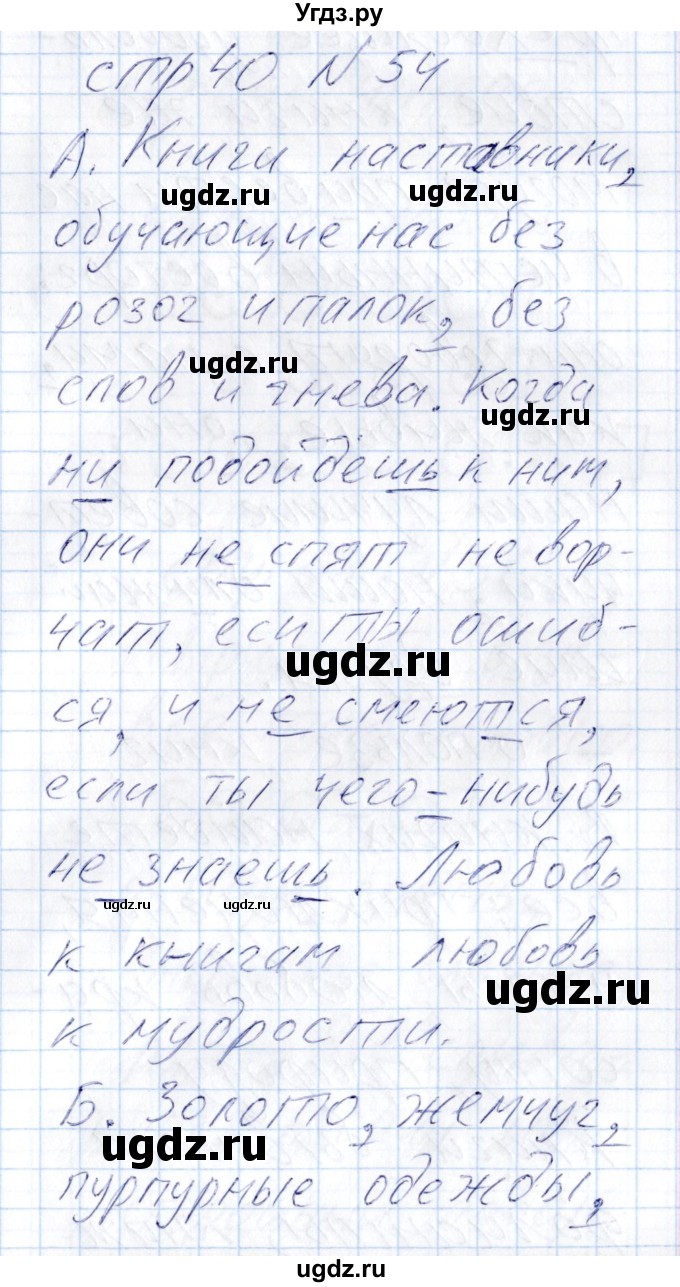 Угдз.ру
стр 40 N 54
А. Книги наставники,
ugdz.ru ugdz.ru
обучающие нас без
розог и палок, без
ugdz.ru
слов и гнева. Когда
ugdz.ru
ни подойдёшь к ним,
они не спят не вор-
чат, еси ты ошиб-
ugdz.ru
ся, и не смеются,
если ты чего-нибудь
не знаешь. Любовь
ugdz.ru ugdz.ru
к книгам любовь
ugdz.ru
к мудрости.
Б. Золото, жемчуг,
ugdz.ru
пурпурные одежды,
ugdz.ru